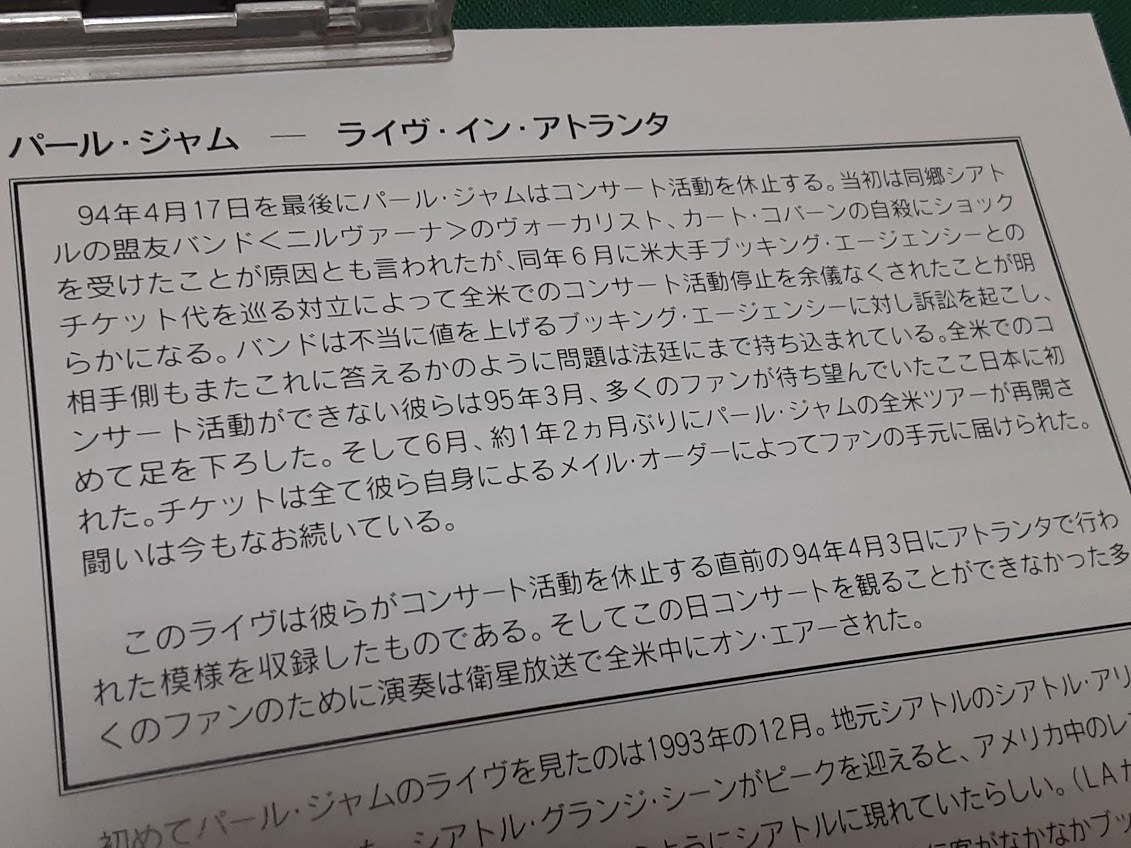 パール・ジャム ― ライヴ・イン・アトランタ
94年4月17日を最後にパール・ジャムはコンサート活動を休止する。当初は同郷シアト
ルの盟友バンド<ニルヴァーナ>のヴォーカリスト、カート・コバーンの自殺にショック
を受けたことが原因とも言われたが、同年6月に米大手ブッキング・エージェンシーとの
チケット代を巡る対立によって全米でのコンサート活動停止を余儀なくされたことが明
らかになる。バンドは不当に値を上げるブッキング・エージェンシーに対し訴訟を起こし、
相手側もまたこれに答えるかのように問題は法廷にまで持ち込まれている。全米でのコ
ンサート活動ができない彼らは95年3月、多くのファンが待ち望んでいたここ日本に初
めて足を下ろした。そして6月、約1年2ヵ月ぶりにパール・ジャムの全米ツアーが再開さ
れた。チケットは全て彼ら自身によるメイル・オーダーによってファンの手元に届けられた。
闘いは今もなお続いている。
このライヴは彼らがコンサート活動を休止する直前の94年4月3日にアトランタで行わ
れた模様を収録したものである。そしてこの日コンサートを観ることができなかった多
くのファンのために演奏は衛星放送で全米中にオン・エアーされた。
初めてパール・ジャムのライヴを見たのは1993年の12月。地元シアトルのシアトル・アリ
シアトル・グランジ・シーンがピークを迎えると、アメリカ中のレ
ようにシアトルに現れていたらしい。(LAか
客がなかなかブッ